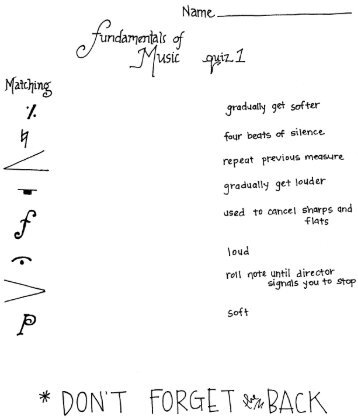 Name
Fundamentals of
Music quiz 1
Matching
gradually get softer
four beats of silence
repeat previous measure
gradually get louder
used to cancel sharps and
flats
f
loud
roll note until director
signals you to stop
p
soft
* DON'T FORGET BACK